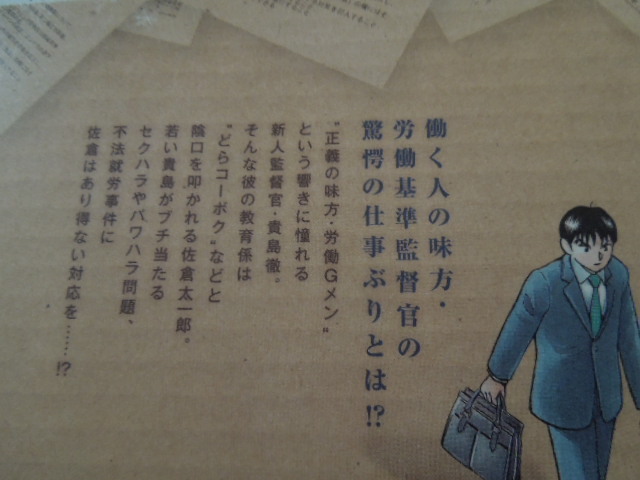 働く人の味方・
労働基準監督官の
驚愕の仕事ぶりとは!?
"正義の味方・労働Gメン"
という響きに憧れる
新人監督官・貴島徹。
そんな彼の教育係は
"どらコーボク"などと
陰口を叩かれる佐倉太一郎。
若い貴島がブチ当たる
セクハラやパワハラ問題、
不法就労事件に
佐倉はあり得ない対応を……!?